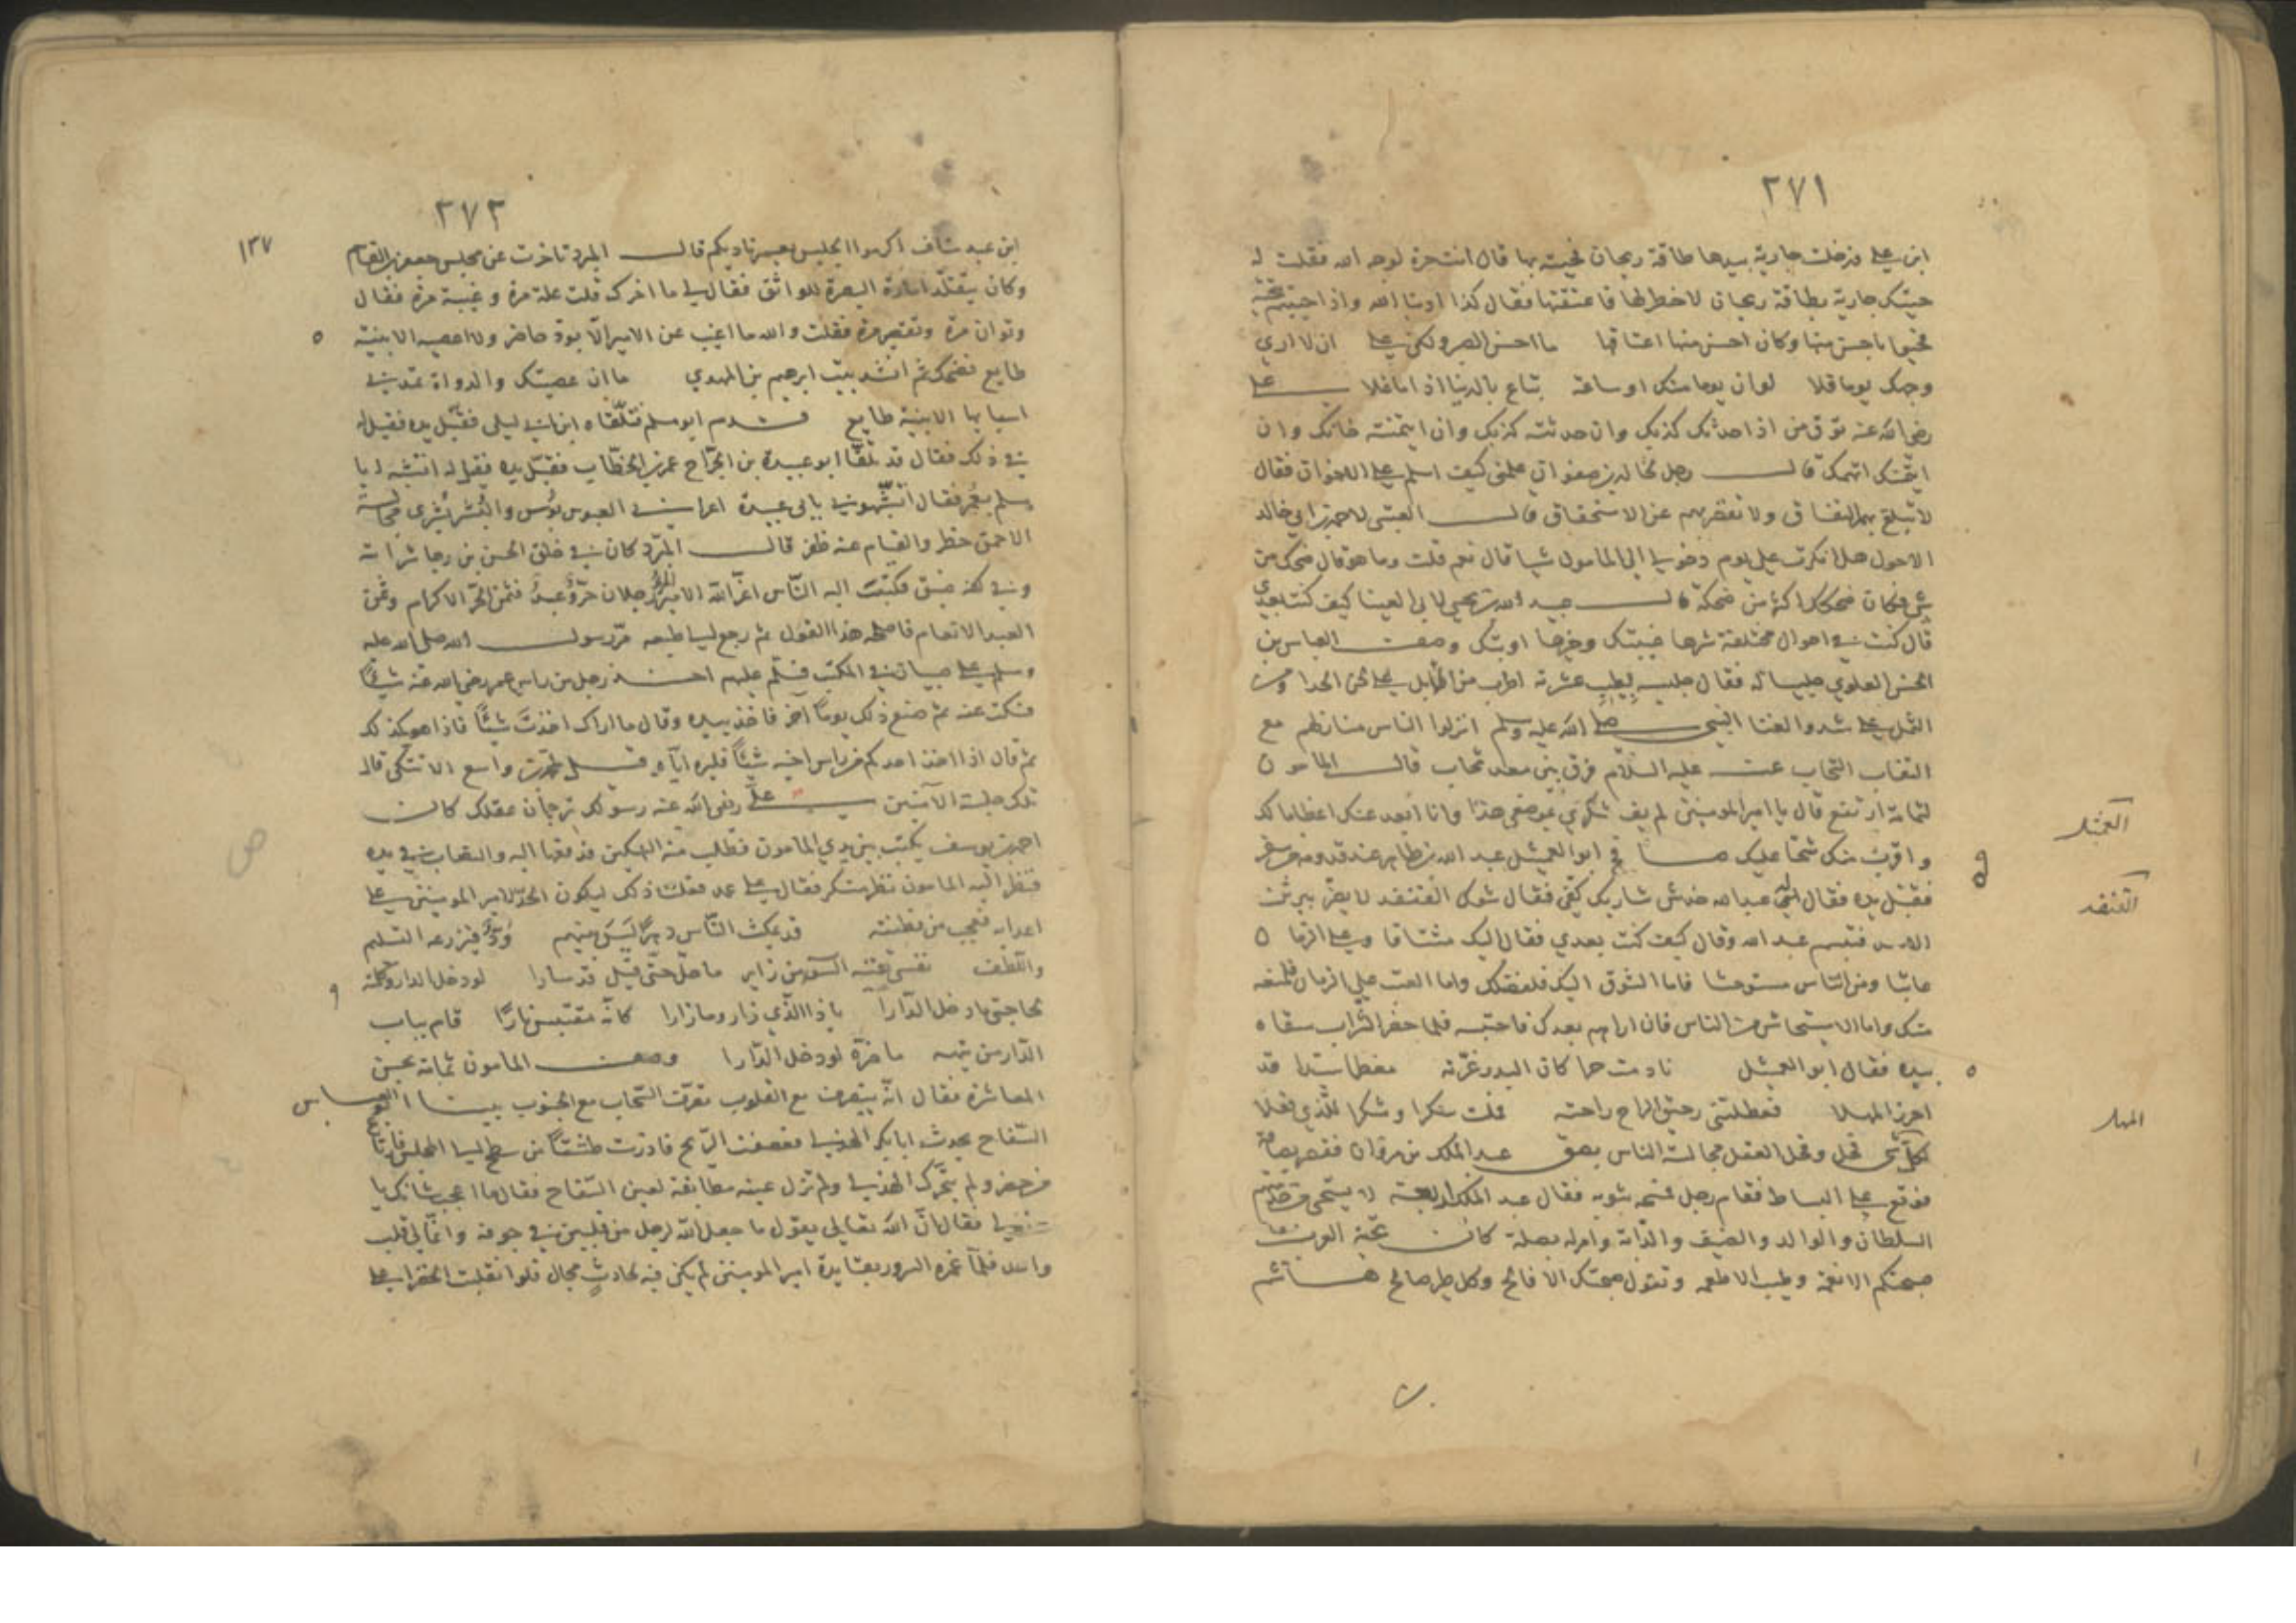 ٢٧١
ابن علي فدخلت جارية بيدها طاقة ريحان فحيته بها قال انت حرة لوجه الله فقلت له
حيتك جارية بطاقة ريحان لا خطر لها فاعتقتها فقال كذا ادبنا الله واذا حييتم بتحية
فحيوا باحسن منها وكان احسن منها اعتاقها ما احسن الصبر ولكن علي ان لا اري
وجهك يوما فلا لو ان يوما منك او ساعة تباع بالدنيا اذا ما غلا علي
رضي الله عنه توق من اذا حدثك كذبك وان حدثته كذبك وان ايتمنته خانك وان
ايتمنك اتهمك قال رجل لخالد بن صفوان علمني كيف اسلم علي الاخوان فقال
لا تبلغ بهم النفاق ولا تقصر بهم عن الاستحقاق قال العتبي لاحمد بن ابي خالد
الاحول هل انكرت علي يوم دخولي الي المامون شيا قال نعم قلت وما هو قال ضحك من
شي فكان ضحكك اكثر من ضحكه قال عبد الله بن يحيي لابي العينا كيف كنت بعدي
قال كنت في احوال مختلفة شرها غيبتك وخيرها اوبتك وصف العباس بن
الحسن العلوي جليسا له فقال جليسه لطيب عشرته اطرب من الابل علي الحدا ومن
الثمل علي شدو الغنا النبي صلي الله عليه وسلم انزلوا الناس منازلهم مع
النقاب التحاب عنه عليه السلام فرق بين معد تحاب قال المامون
لثمامة ارتفع قال يا امير المومنين لم يف شكري بموضعي هذا وانا ابعد عنك اعظاما لك
واقرب منك شحا عليك صافح ابو العميثل عبد الله بن طاهر عند قدومه من سفر
العميثل
فقبل يده فقال له عبد الله خدش شاربك كفي فقال شوك القنفذ لا يضر ببرثن
القنفذ
الاسد فتبسم عبد الله وقال كيف كنت بعدي فقال اليك مشتاقا وعلي الزمان
عاتبا ومن الناس مستوحشا فاما الشوق اليك فلفضلك واما العتب علي الزمان فلمنعه
منك واما الاستيحاش من الناس فان اراهم بعدك فاحتبسه فلما حضر الشراب سقاه
بيده فقال ابو العميثل نادمت حرا كان البدر غرته معظما سيدا قد
احرز المهلا فعطلتني رحيق الراح راحته قلت سكرا وشكرا للذي فعلا
المهلا
لكل شي فحل وفحل العقل مجالسة الناس بصق عبد الملك بن مروان فقصر بصاقه
فوقع علي البساط فقام رجل فمسحه بثوبه فقال عبد الملك اربعة لا يستحي من خدمتهم
السلطان والوالد والضيف والدابة وامر له بصلة كان تحية العرب
صبحتكم الانعمة وطيب الاطعمه وتقول صبحتك الافالح وكل طير صالح هاشم
٢٧٢
١٣٧
ابن عبد مناف اكرموا الجليس يعمر ناديكم قال المبرد تاخرت عن مجلس جعفر بن القاسم
وكان يتقلد امارة البصرة للواثق فقال لي ما اخرك قلت علة مرة وغيبة مرة فقال
وتوان مرة وتقصير مرة فقلت والله ما اغيب عن الامير الا بود حاضر ولا اعصيه الا بنية
طايع فضحك ثم انشد بيت ابرهيم بن المهدي ما ان عصيتك والدواة تمدني
اسبابها الا بنية طايع قدم ابو مسلم فتلقاه ابن ابي ليلي فقبل يده فقيل له
في ذلك فقال قد تلقا ابو عبيدة بن الجراح عمر بن الخطاب فقبل يده فقيل له اتشبه ابا
مسلم بعمر فقال اتشبهوني بابي عبيدة اعرابي العبوس بوس والبشر بشري مجالسة
الاحمق خطر والقيام عنه ظفر قال المبرد كان في خلق الحسن بن رجا شراسة
وفي كفه ضيق فكتبت اليه الناس اعز الله الامير رجلان حر وعبد فثمن الحر الاكرام وثمن
العبد الانعام فاصلحه هذا القول ثم رجع الي طبعه مر رسول الله صلي الله عليه
وسلم علي صبيان في المكتب فسلم عليهم اخذ رجل من راس عمر رضي الله عنه شيئا
فسكت عنه ثم صنع ذلك يوما آخر فاخذ بيده وقال ما اراك اخذت شيئا فاذا هو كذلك
ثم قال اذا اخذ احدكم من راس اخيه شيئا فليره اياه قيل لمحمد بن واسع الا تتكي قال
تلك جلسة الآمنين علي رضي الله عنه رسولك ترجمان عقلك كان
احمد بن يوسف يكتب بين يدي المامون فطلب منه السكين فدفعها اليه والنصاب في يده
فنظر اليه المامون نظر منكر فقال علي عمد فعلت ذلك ليكون الحد لامير المومنين علي
اعدائه فعجب من فطنته قد يمكث الناس دهرا ليس بينهم ود فيزرعه التسليم
واللطف نفسي تقيه السوء من زاير ما حل حتي قيل قد سارا لو دخل الدار وكلمته
بحاجتي ما دخل الدارا يا ذا الذي زار وما زارا كانه مقتبس نارا قام بباب
الدار من تيهه ما ضره لو دخل الدارا وصف المامون ثمامة بحسن
المعاشرة فقال انه يتصرف مع القلوب تصرف السحاب مع الجنوب بينا ابو العباس
السفاح يحدث ابا بكر الهذلي فعصفت الريح فاذرت طشتا من سطح الي المجلس فارتاع
من حضر ولم يتحرك الهذلي ولم تزل عينه مطابقة لعين السفاح فقال ما اعجب شانك يا
هذلي فقال ان الله تعالي يقول ما جعل الله لرجل من قلبين في جوفه وانما لي قلب
واحد فلما غمره السرور بفايدة امير المومنين لم يكن فيه لحادث مجال فلو انقلبت الخضرا علي